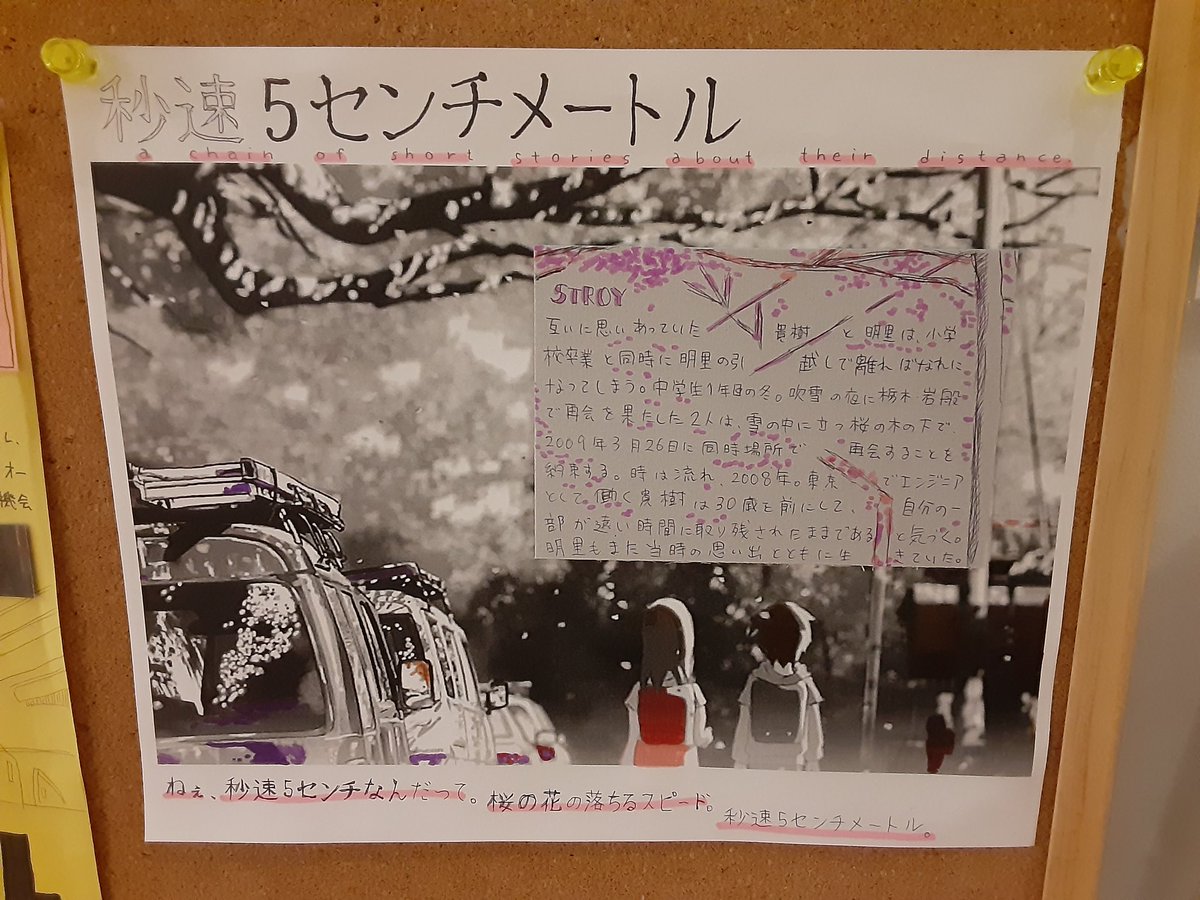 秒速5センチメートル
a chain of short stories about their distance
STROY
互いに思いあっていた 貴樹 と 明里は、小学
校卒業と同時に明里の引 越しで離ればなれに
なってしまう。中学生1年目の冬。吹雪の夜に栃木・岩殿
で再会を果たした2人は、雪の中に立つ桜の木の下で、
2009年3月26日に同時場所で 再会することを
約束する。時は流れ、2008年。東京 でエンジニア
として働く貴樹は30歳を前にして、 自分の一
部が遠い時間に取り残されたままである と気づく。
明里もまた当時の思い出とともに生 きていた。
ねぇ、秒速5センチなんだって。桜の花の落ちるスピード。
秒速5センチメートル。
し、
オー
機会